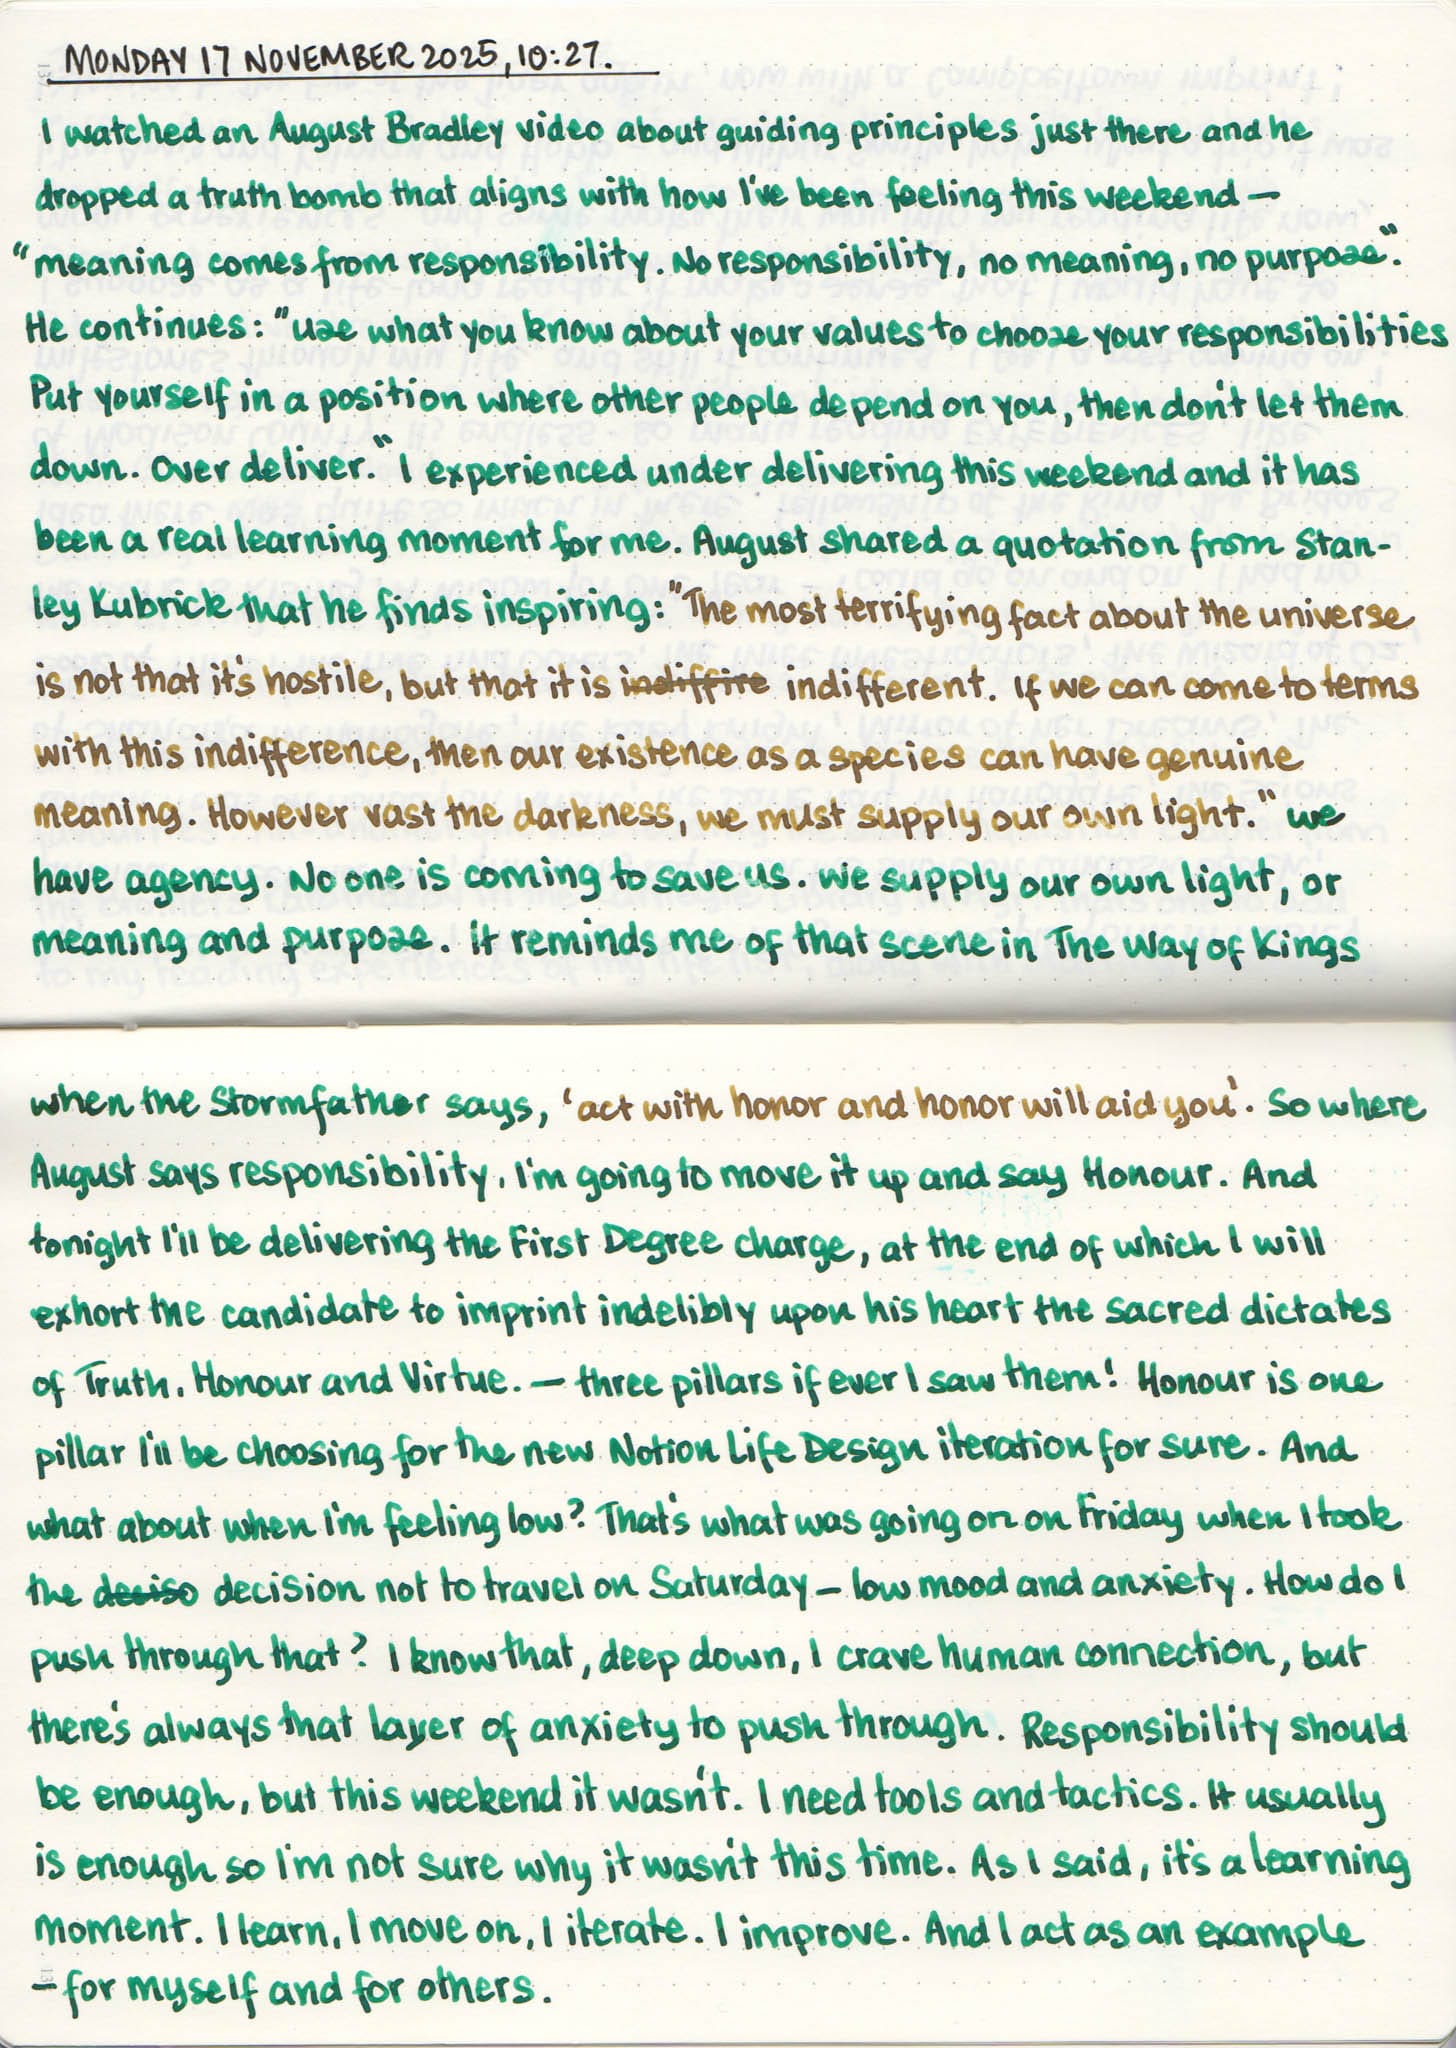 MONDAY 17 NOVEMBER 2025, 10:27.
I watched an August Bradley video about guiding principles just there and he
dropped a truth bomb that aligns with how I've been feeling this weekend —
"meaning comes from responsibility. No responsibility, no meaning, no purpose".
He continues: "use what you know about your values to choose your responsibilities
Put yourself in a position where other people depend on you, then don't let them
down. Over deliver." I experienced under delivering this weekend and it has
been a real learning moment for me. August shared a quotation from Stan-
ley Kubrick that he finds inspiring: "The most terrifying fact about the universe
is not that it's hostile, but that it is indiffire indifferent. If we can come to terms
with this indifference, then our existence as a species can have genuine
meaning. However vast the darkness, we must supply our own light." We
have agency. No one is coming to save us. We supply our own light, or
meaning and purpose. It reminds me of that scene in The Way of Kings
when the Stormfather says, 'act with honor and honor will aid you'. So where
August says responsibility, I'm going to move it up and say Honour. And
tonight I'll be delivering the First Degree charge, at the end of which I will
exhort the candidate to imprint indelibly upon his heart the sacred dictates
of Truth, Honour and Virtue. — three pillars if ever I saw them! Honour is one
pillar I'll be choosing for the new Notion Life Design iteration for sure. And
what about when I'm feeling low? That's what was going on on Friday when I took
the desiso decision not to travel on Saturday — low mood and anxiety. How do I
push through that? I know that, deep down, I crave human connection, but
there's always that layer of anxiety to push through. Responsibility should
be enough, but this weekend it wasn't. I need tools and tactics. It usually
is enough so I'm not sure why it wasn't this time. As I said, it's a learning
moment. I learn, I move on, I iterate. I improve. And I act as an example
— for myself and for others.